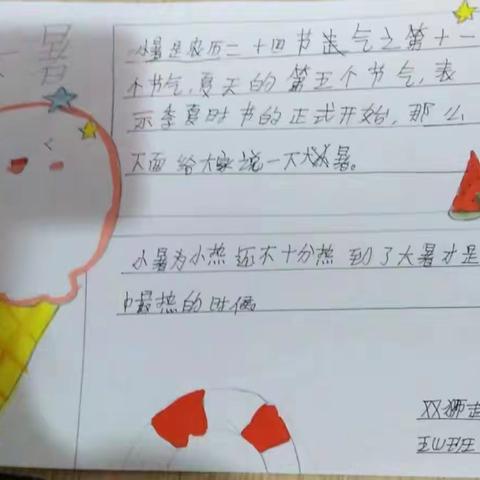 小暑
小暑是农历二十四节气之第十一
个节气,夏天的第五个节气,表
示季夏时节的正式开始,那么
下面给大家说一下小暑。
小暑为小热还不十分热到了大暑才是
中最热的时候
双狮
五(4)班